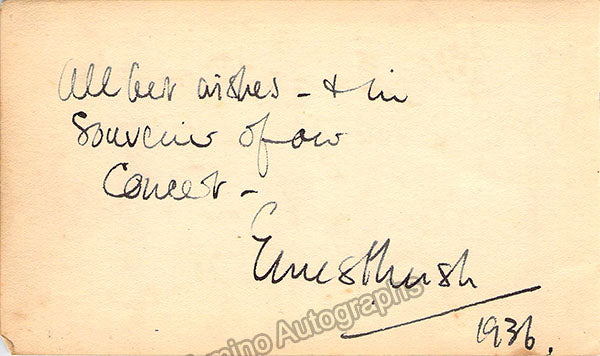 All best wishes - & in
Souvenir of our
Concert -
Ernest Lush
1936.
mino Autographs